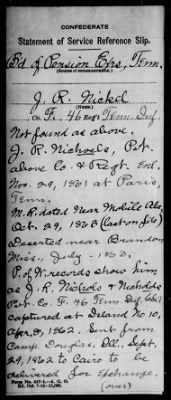 CONFEDERATE
Statement of Service Reference Slip.
Bd of Pension Exrs, Tenn.
J. R. Nickel
Co. F. 46 Reg't Tenn. Inf.
Not found as above.
J. R. Nichols, Pvt.
above Co. & Regt. Enl.
Nov. 29, 1861 at Paris,
Tenn.
M.R. dated Near Mobile Ala,
Oct. 29, 1863 (last on file)
Deserted near Brandon
Miss. July - 1863.
P. of W. records show him
as J. R. Nichols & Nickolds
Pvt. Co. F 46 Tenn. Inf.
captured at Island No. 10,
Apr. 8, 1862. Sent from
Camp Douglas, Ill. Sept.
29, 1862 to Cairo to be
delivered for exchange.
Form No. 447-1—A. G. O.
(over)